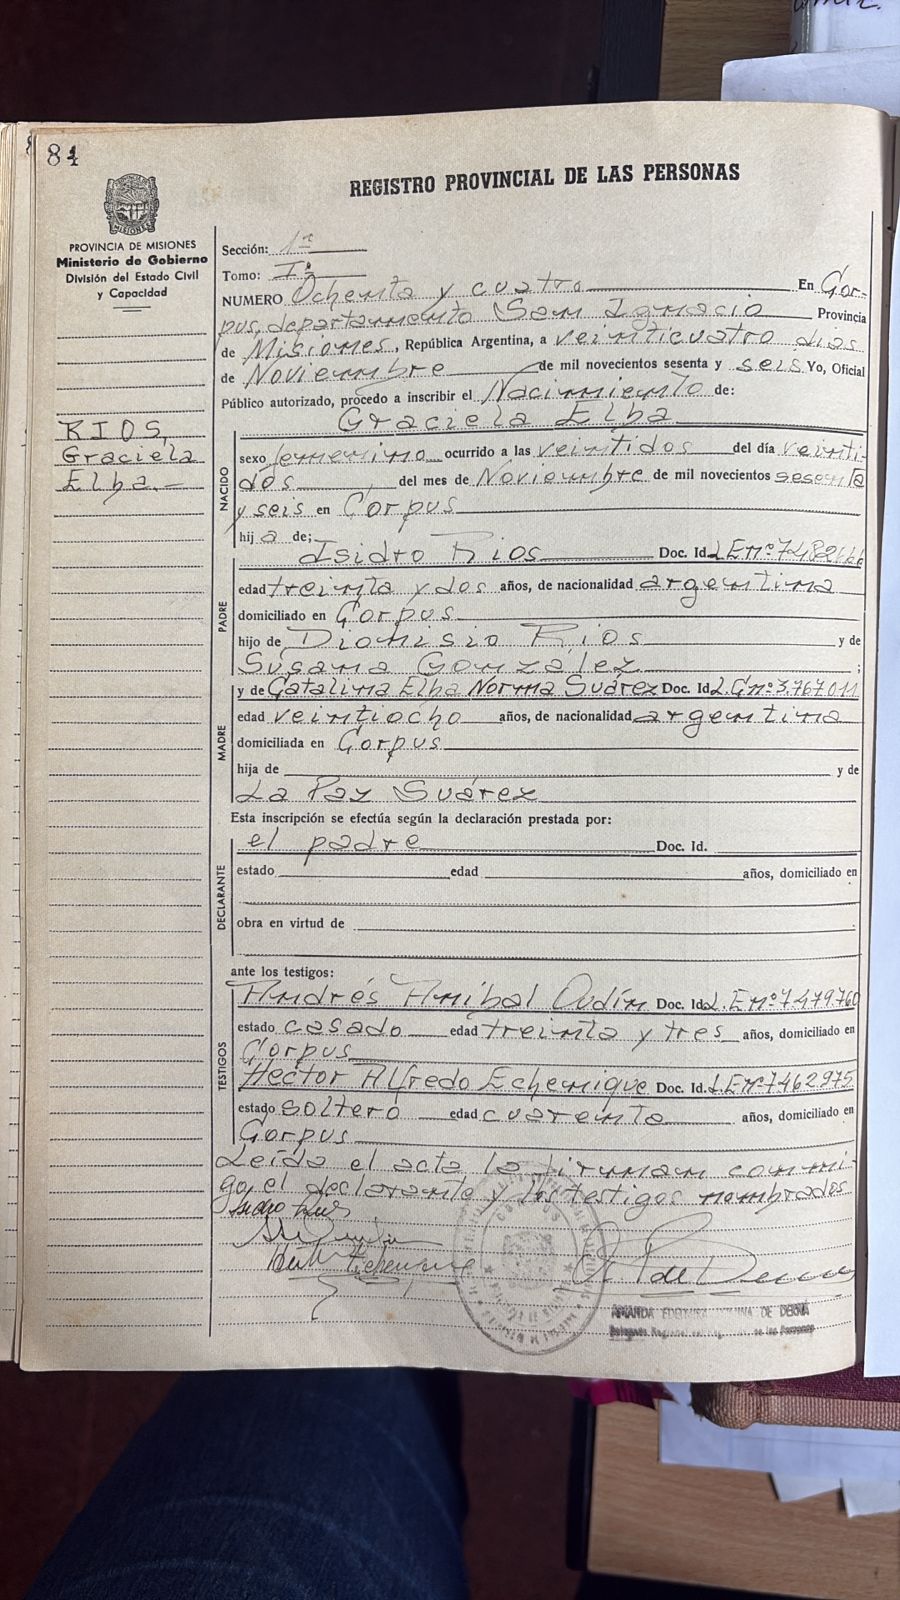 84
REGISTRO PROVINCIAL DE LAS PERSONAS
PROVINCIA DE MISIONES
Ministerio de Gobierno
División del Estado Civil
y Capacidad
RIOS,
Graciela
Elba.-
Sección: 1ª
Tomo: Iº
NUMERO Ochenta y cuatro En Cor-
pus, departamento San Ignacio Provincia
de Misiones, República Argentina, a veinticuatro dias
de Noviembre de mil novecientos sesenta y seis Yo, Oficial
Público autorizado, procedo a inscribir el Nacimiento de:
Graciela Elba
NACIDO
sexo femenino ocurrido a las veintidos del día veinti-
dós del mes de Noviembre de mil novecientos sesenta
y seis en Corpus
hija de;
Isidro Rios Doc. Id. L.E.nº
PADRE
edad treinta y dos años, de nacionalidad argentina
domiciliado en Corpus
hijo de Dionisio Rios y de
Susana Gonzalez ;
y de Catalina Elba Norma Suárez Doc. Id. L.C.nº3.767.011
MADRE
edad veintiocho años, de nacionalidad argentina
domiciliada en Corpus
hija de y de
La Paz Suárez
Esta inscripción se efectúa según la declaración prestada por:
el padre Doc. Id.
DECLARANTE
estado edad años, domiciliado en
obra en virtud de
ante los testigos:
TESTIGOS
Andrés Anibal Doc. Id. L.E.nº7479760
estado casado edad treinta y tres años, domiciliado en
Corpus
Hector Alfredo Echenique Doc. Id. L.E.nº7462975
estado soltero edad cuarenta años, domiciliado en
Corpus
Leída el acta la firman conmi-
go, el declarante y los testigos nombrados
Isidro Rios
CORPUS
AMANDA DE